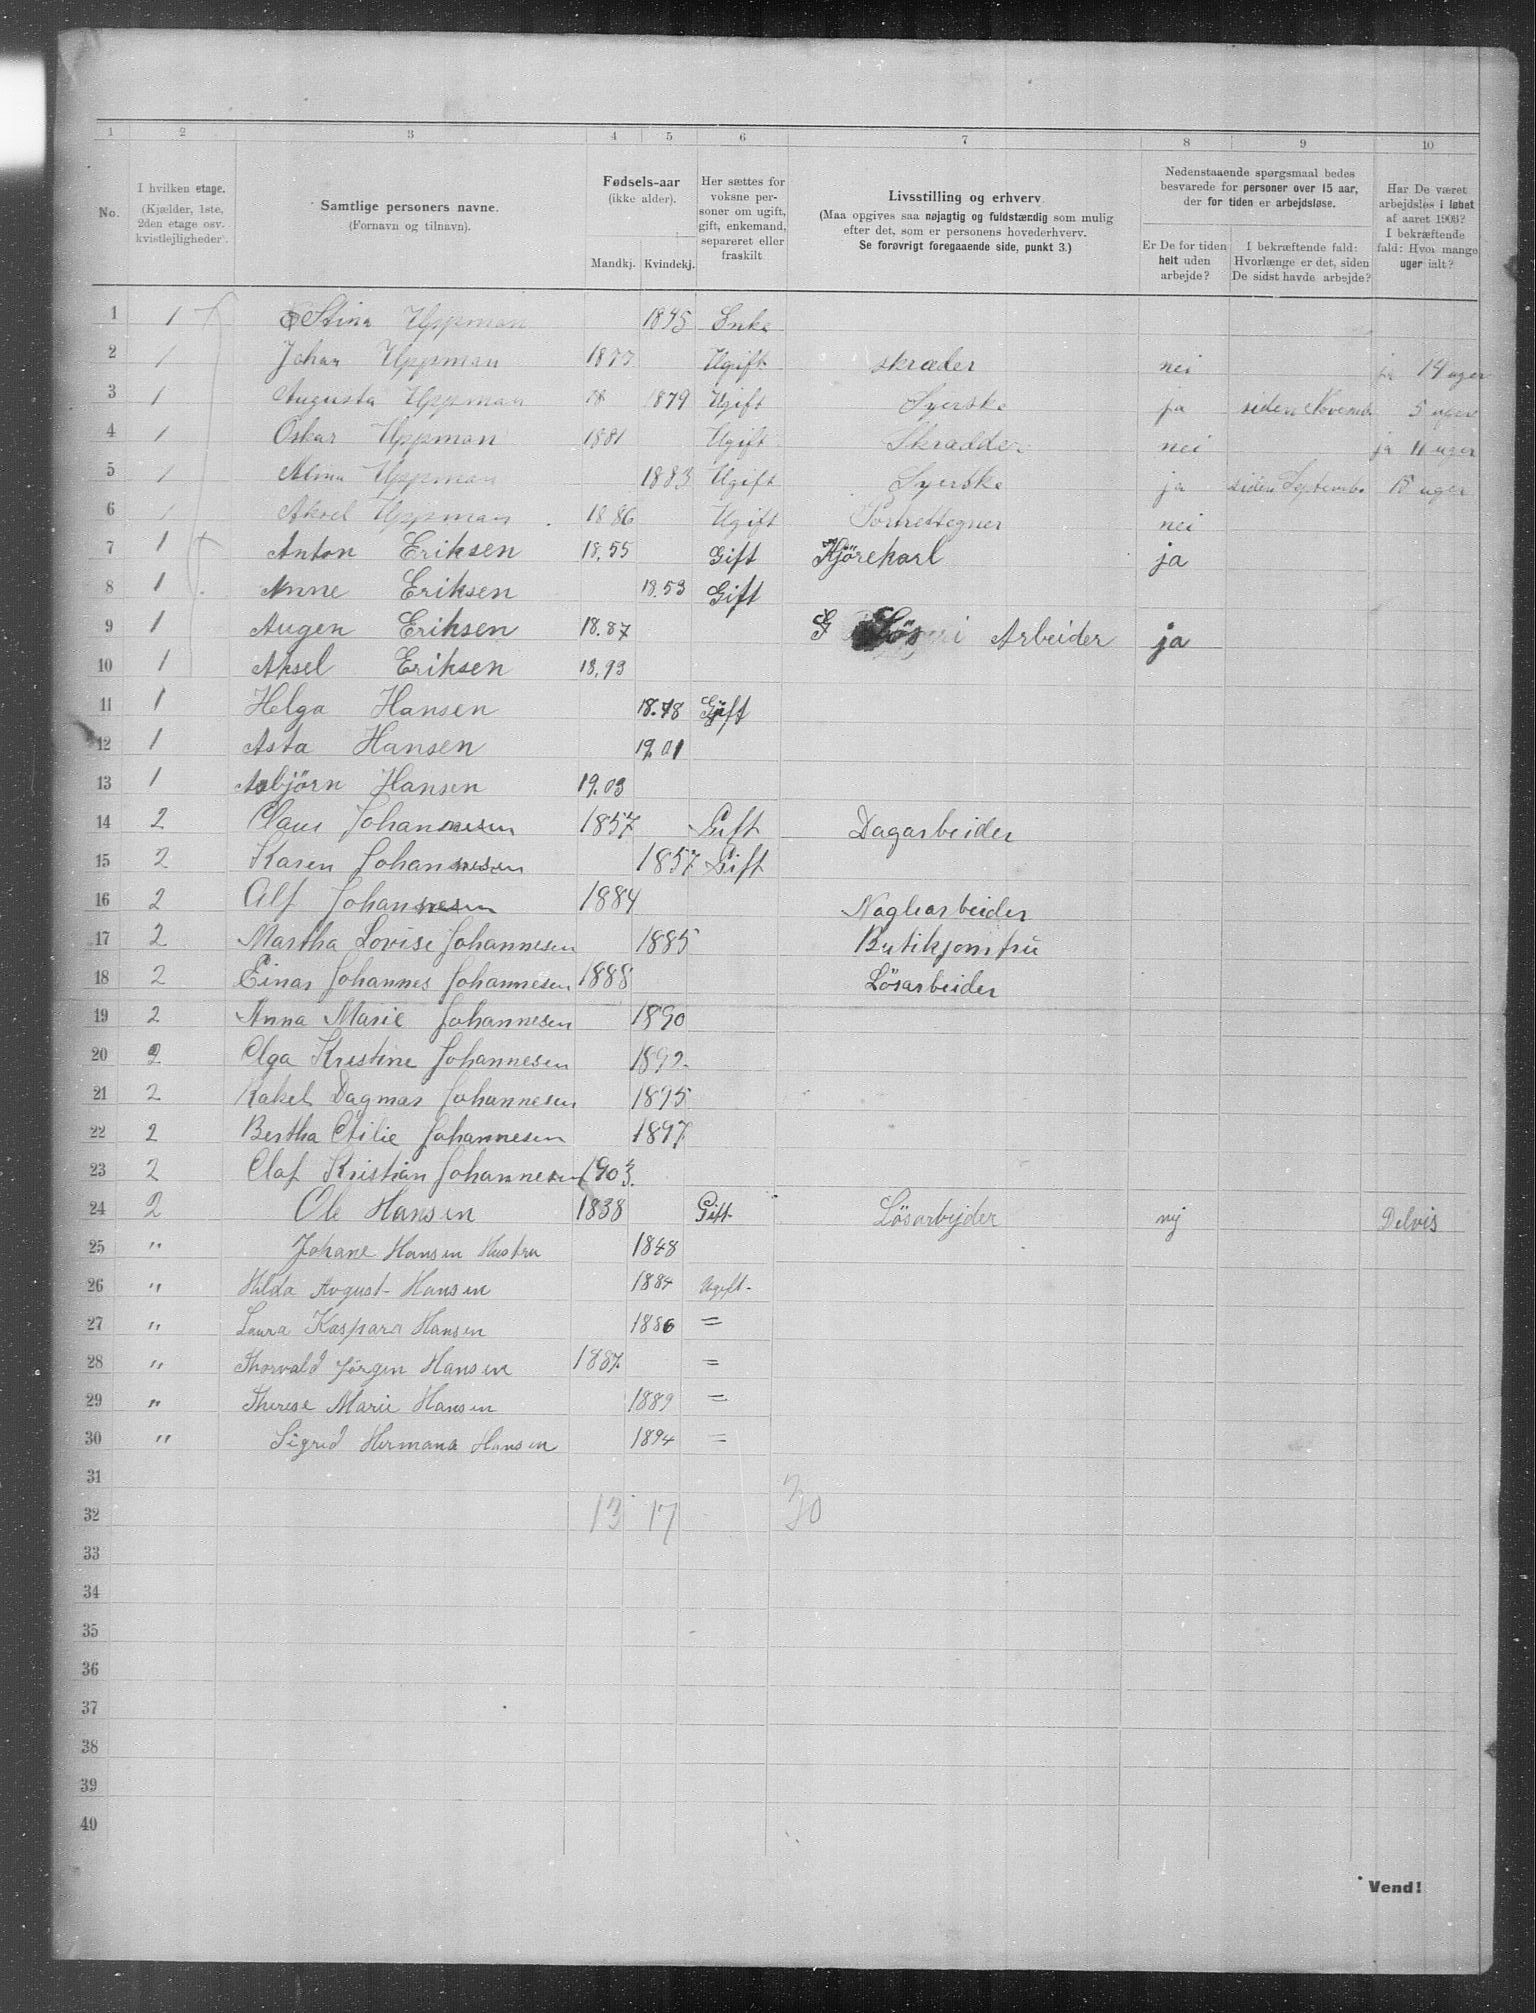 1 2 3 4 5 6 7 8 9 10
No.
I hvilken etage.
(Kjælder, 1ste, 2den etage osv. kvistlejligheder).
Samtlige personers navne.
(Fornavn og tilnavn).
Fødsels-aar
(ikke alder).
Mandkj. Kvindekj.
Her sættes for voksne personer om ugift, gift, enkemand, separeret eller fraskilt
Livsstilling og erhverv.
(Maa opgives saa nøjagtig og fuldstændig som mulig efter det, som er personens hovederhverv.
Se forøvrigt foregaaende side, punkt 3.)
Nedenstaaende spørgsmaal bedes besvarede for personer over 15 aar, der for tiden er arbejdsløse.
Er De for tiden helt uden arbejde?
I bekræftende fald: Hvorlænge er det, siden De sidst havde arbejde?
Har De været arbejdsløs i løbet af aaret 1903?
I bekræftende fald: Hvor mange uger ialt?
1 1 Stina Uppman 1845 Enke
2 1 Johan Uppman 1877 Ugift skræder nei ja 14 uger
3 1 Augusta Uppman 18 1879 Ugift Syerske ja siden Novemb 5 uger
4 1 Oskar Uppman 1881 Ugift Skrædder nei ja 11 uger
5 1 Alma Uppman 1883 Ugift Syerske ja siden Septembr 15 uger
6 1 Aksel Uppman 1886 Ugift Portrettegner nei
7 1 Anton Eriksen 18.55 Gift Kjörekarl ja
8 1 Anne Eriksen 18.53 Gift
9 1 Augen Eriksen 18.87 Lös Arbeider ja
10 1 Aksel Eriksen 18.93
11 1 Helga Hansen 18.78 Gift
12 1 Asta Hansen 19.01
13 1 Asbjörn Hansen 19.03
14 2 Claus Johannesen 1857 Gift Dagarbeider
15 2 Karen Johannesen 1857 Gift
16 2 Alf Johannesen 1884 Naglearbeider
17 2 Martha Lovise Johannesen 1885 Butikjomfru
18 2 Einar Johannes Johannesen 1888 Lösarbeider
19 2 Anna Marie Johannesen 1890
20 2 Olga Kristine Johannesen 1892
21 2 Rakel Dagmar Johannesen 1895
22 2 Bertha Otilie Johannesen 1897
23 2 Olaf Kristian Johannesen 1903.
24 2 Ole Hansen 1838 Gift Lösarbejder nej Delvis
25 " Johane Hansen Hustru 1848
26 " Hilda Avgust Hansen 1884 Ugift
27 " Laura Kaspara Hansen 1886 =
28 " Thorvald Jörgen Hansen 1887. =
29 " Therese Marie Hansen 1889 =
30 " Sigrid Hermana Hansen 1894 =
31
32 13 17 30
33
34
35
36
37
38
39
40
Vend!